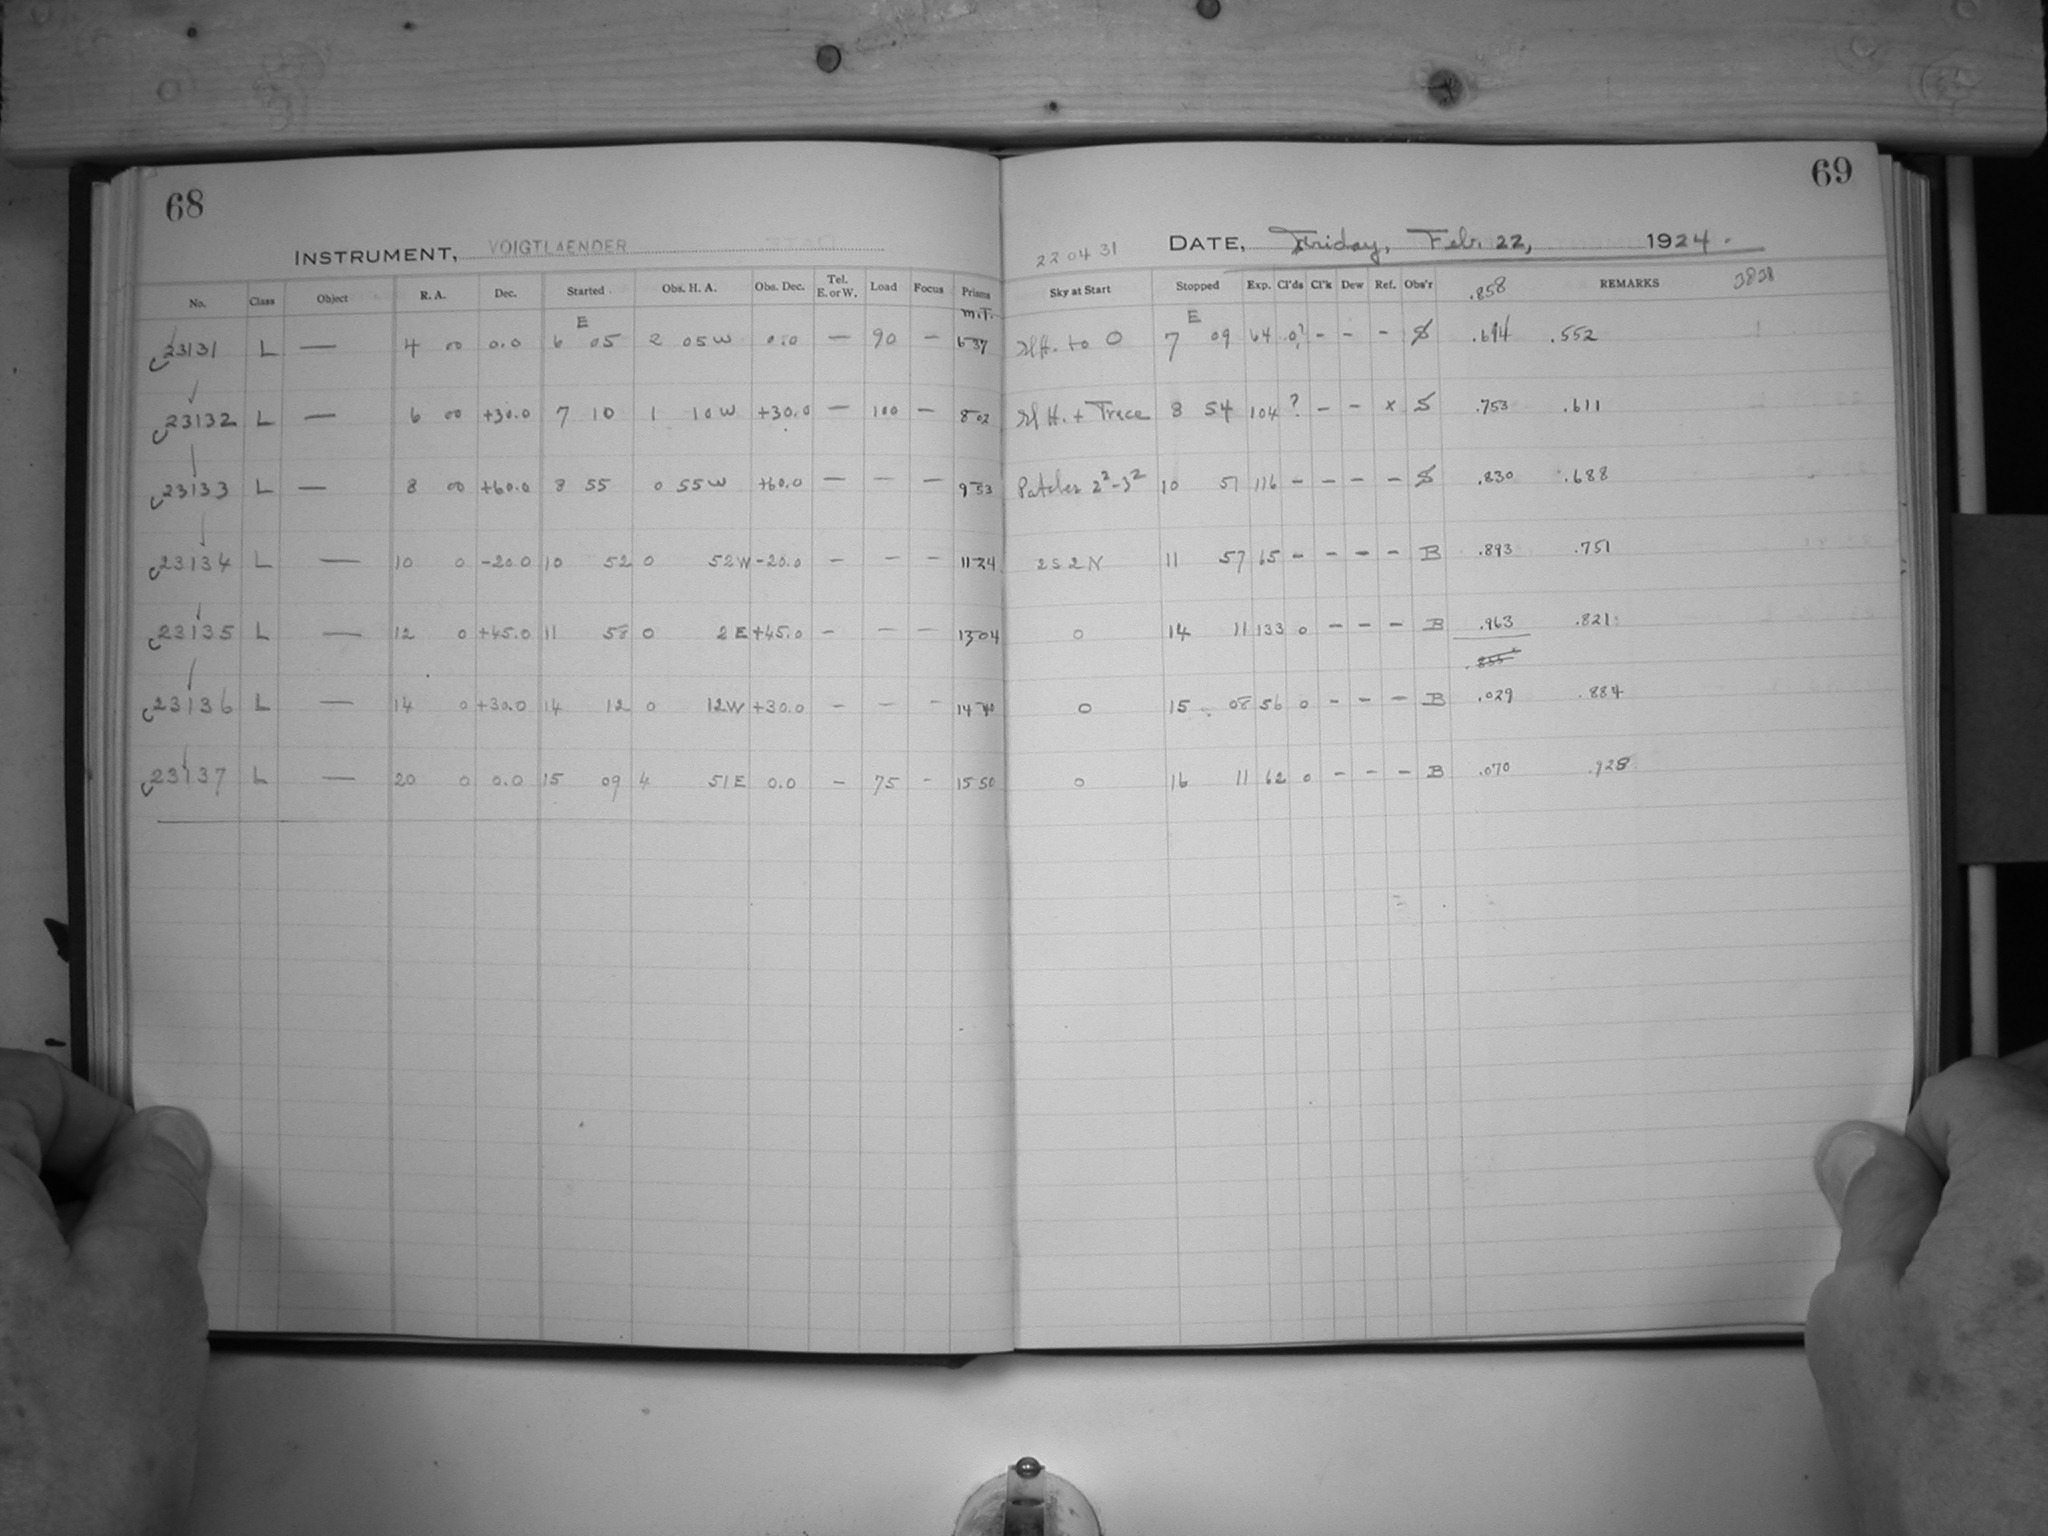 68
INSTRUMENT, VOIGTLAENDER
No. Class Object R. A. Dec. Started Obs. H. A. Obs. Dec. Tel. E. or W. Load Focus Prisms
E m.T.
c23131 L — 4 00 0.0 6 05 2 05 W 0.0 — 90 — 6 37
c23132 L — 6 00 +30.0 7 10 1 10 W +30.0 — 100 — 8 02
c23133 L — 8 00 +60.0 8 55 0 55 W +60.0 — — — 9 53
c23134 L — 10 0 -20.0 10 52 0 52 W -20.0 — — — 11 24
c23135 L — 12 0 +45.0 11 58 0 2 E +45.0 — — — 13 04
c23136 L — 14 0 +30.0 14 12 0 12 W +30.0 — — — 14 40
c23137 L — 20 0 0.0 15 09 4 51 E 0.0 — 75 — 15 50
69
22 04 31 DATE, Friday, Feb. 22, 1924.
Sky at Start Stopped Exp. Cl'ds Cl'k Dew Ref. Obs'r .858 REMARKS 3828
E
Sl H. to 0 7 09 64 0? - - - S .694 .552
Sl H. + Trace 8 54 104 ? - - x S .753 .611
Patches 2²-3² 10 51 116 - - - - S .830 .688
2 S 2 N 11 57 65 - - - - B .893 .751
0 14 11 133 0 - - - B .963 .821
0 15 08 56 0 - - - B .029 .884
0 16 11 62 0 - - - B .070 .928